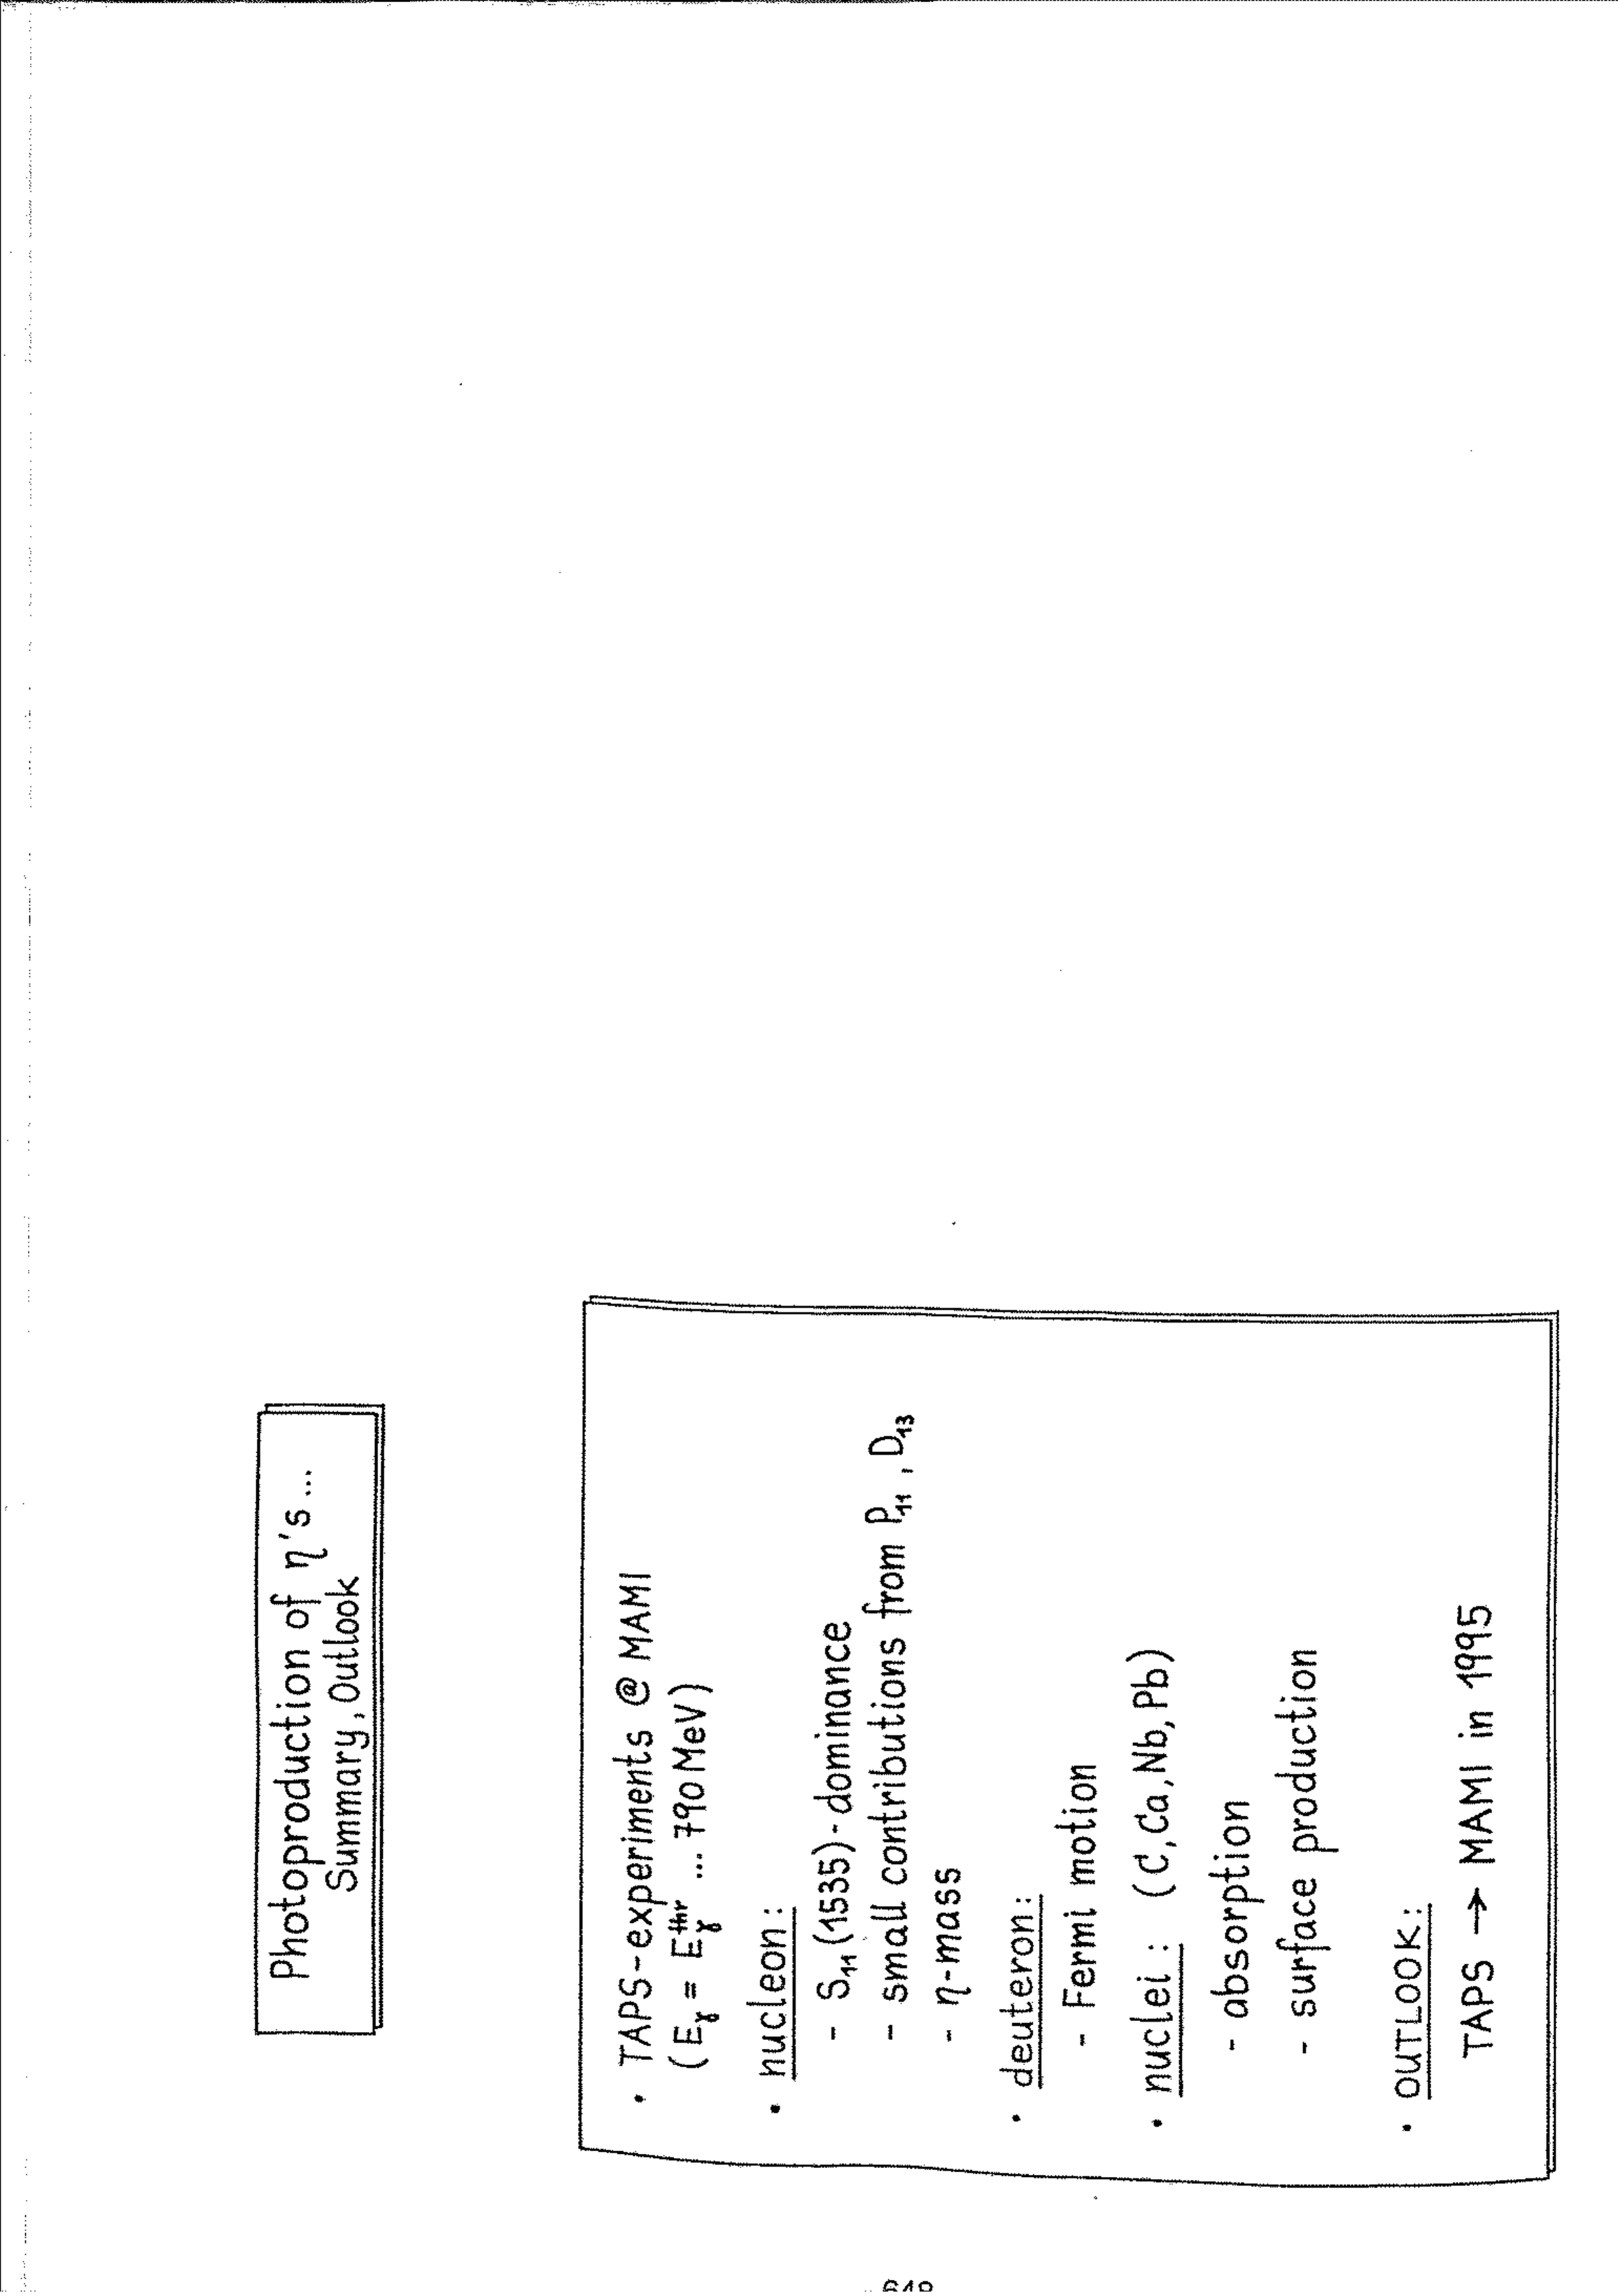 Photoproduction of η's...
Summary, Outlook
• TAPS-experiments @ MAMI
(Eγ = Eγ^thr ... 790 MeV)
• nucleon:
- S₁₁(1535)-dominance
- small contributions from P₁₁, D₁₃
- η-mass
• deuteron:
- Fermi motion
• nuclei: (C, Ca, Nb, Pb)
- absorption
- surface production
• OUTLOOK:
TAPS → MAMI in 1995